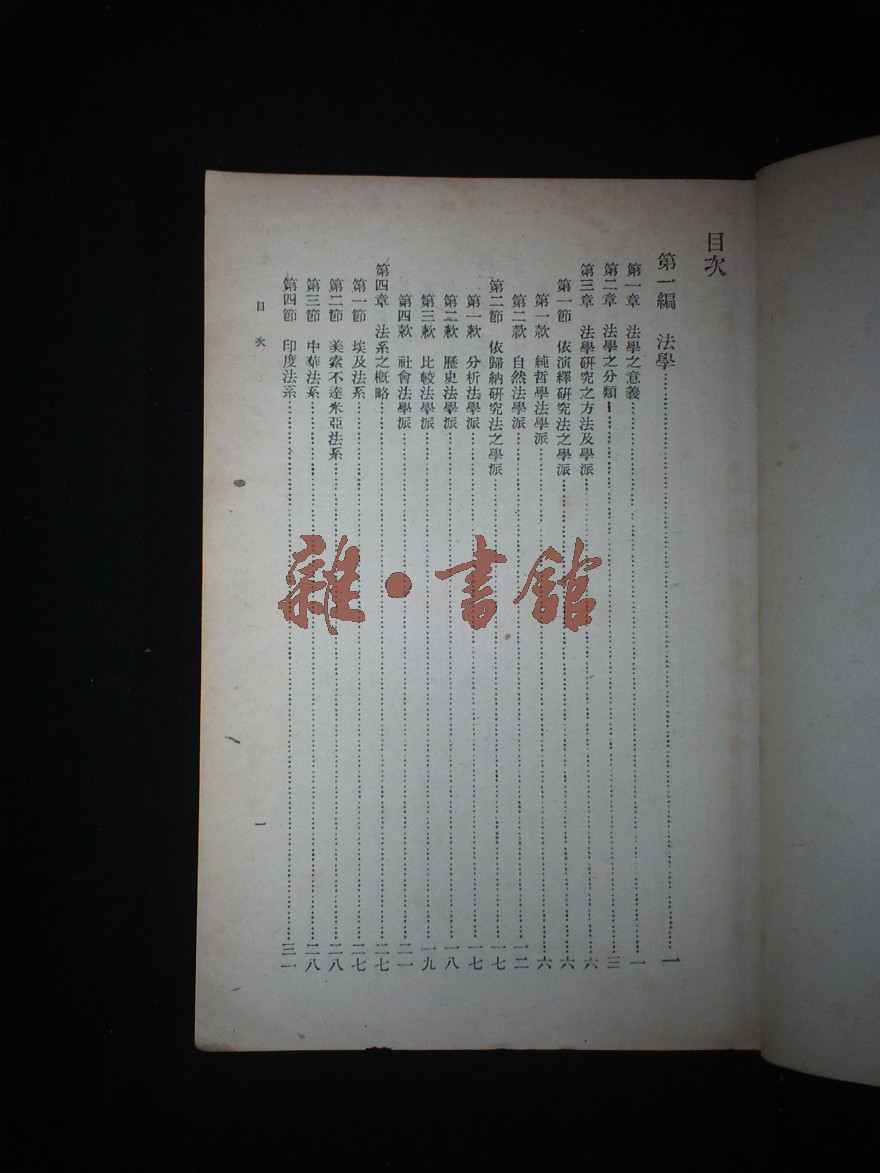 目次
第一編 法學……一
第一章 法學之意義……一
第二章 法學之分類……三
第三章 法學研究之方法及學派……六
第一節 依演繹研究法之學派……六
第一款 純哲學法學派……六
第二款 自然法學派……一二
第二節 依歸納研究法之學派……一七
第一款 分析法學派……一七
第二款 歷史法學派……一八
第三款 比較法學派……一九
第四款 社會法學派……二一
第四章 法系之概略……二七
第一節 埃及法系……二七
第二節 美索不達米亞法系……二八
第三節 中華法系……二八
第四節 印度法系……三一
目次 一
雜·書館